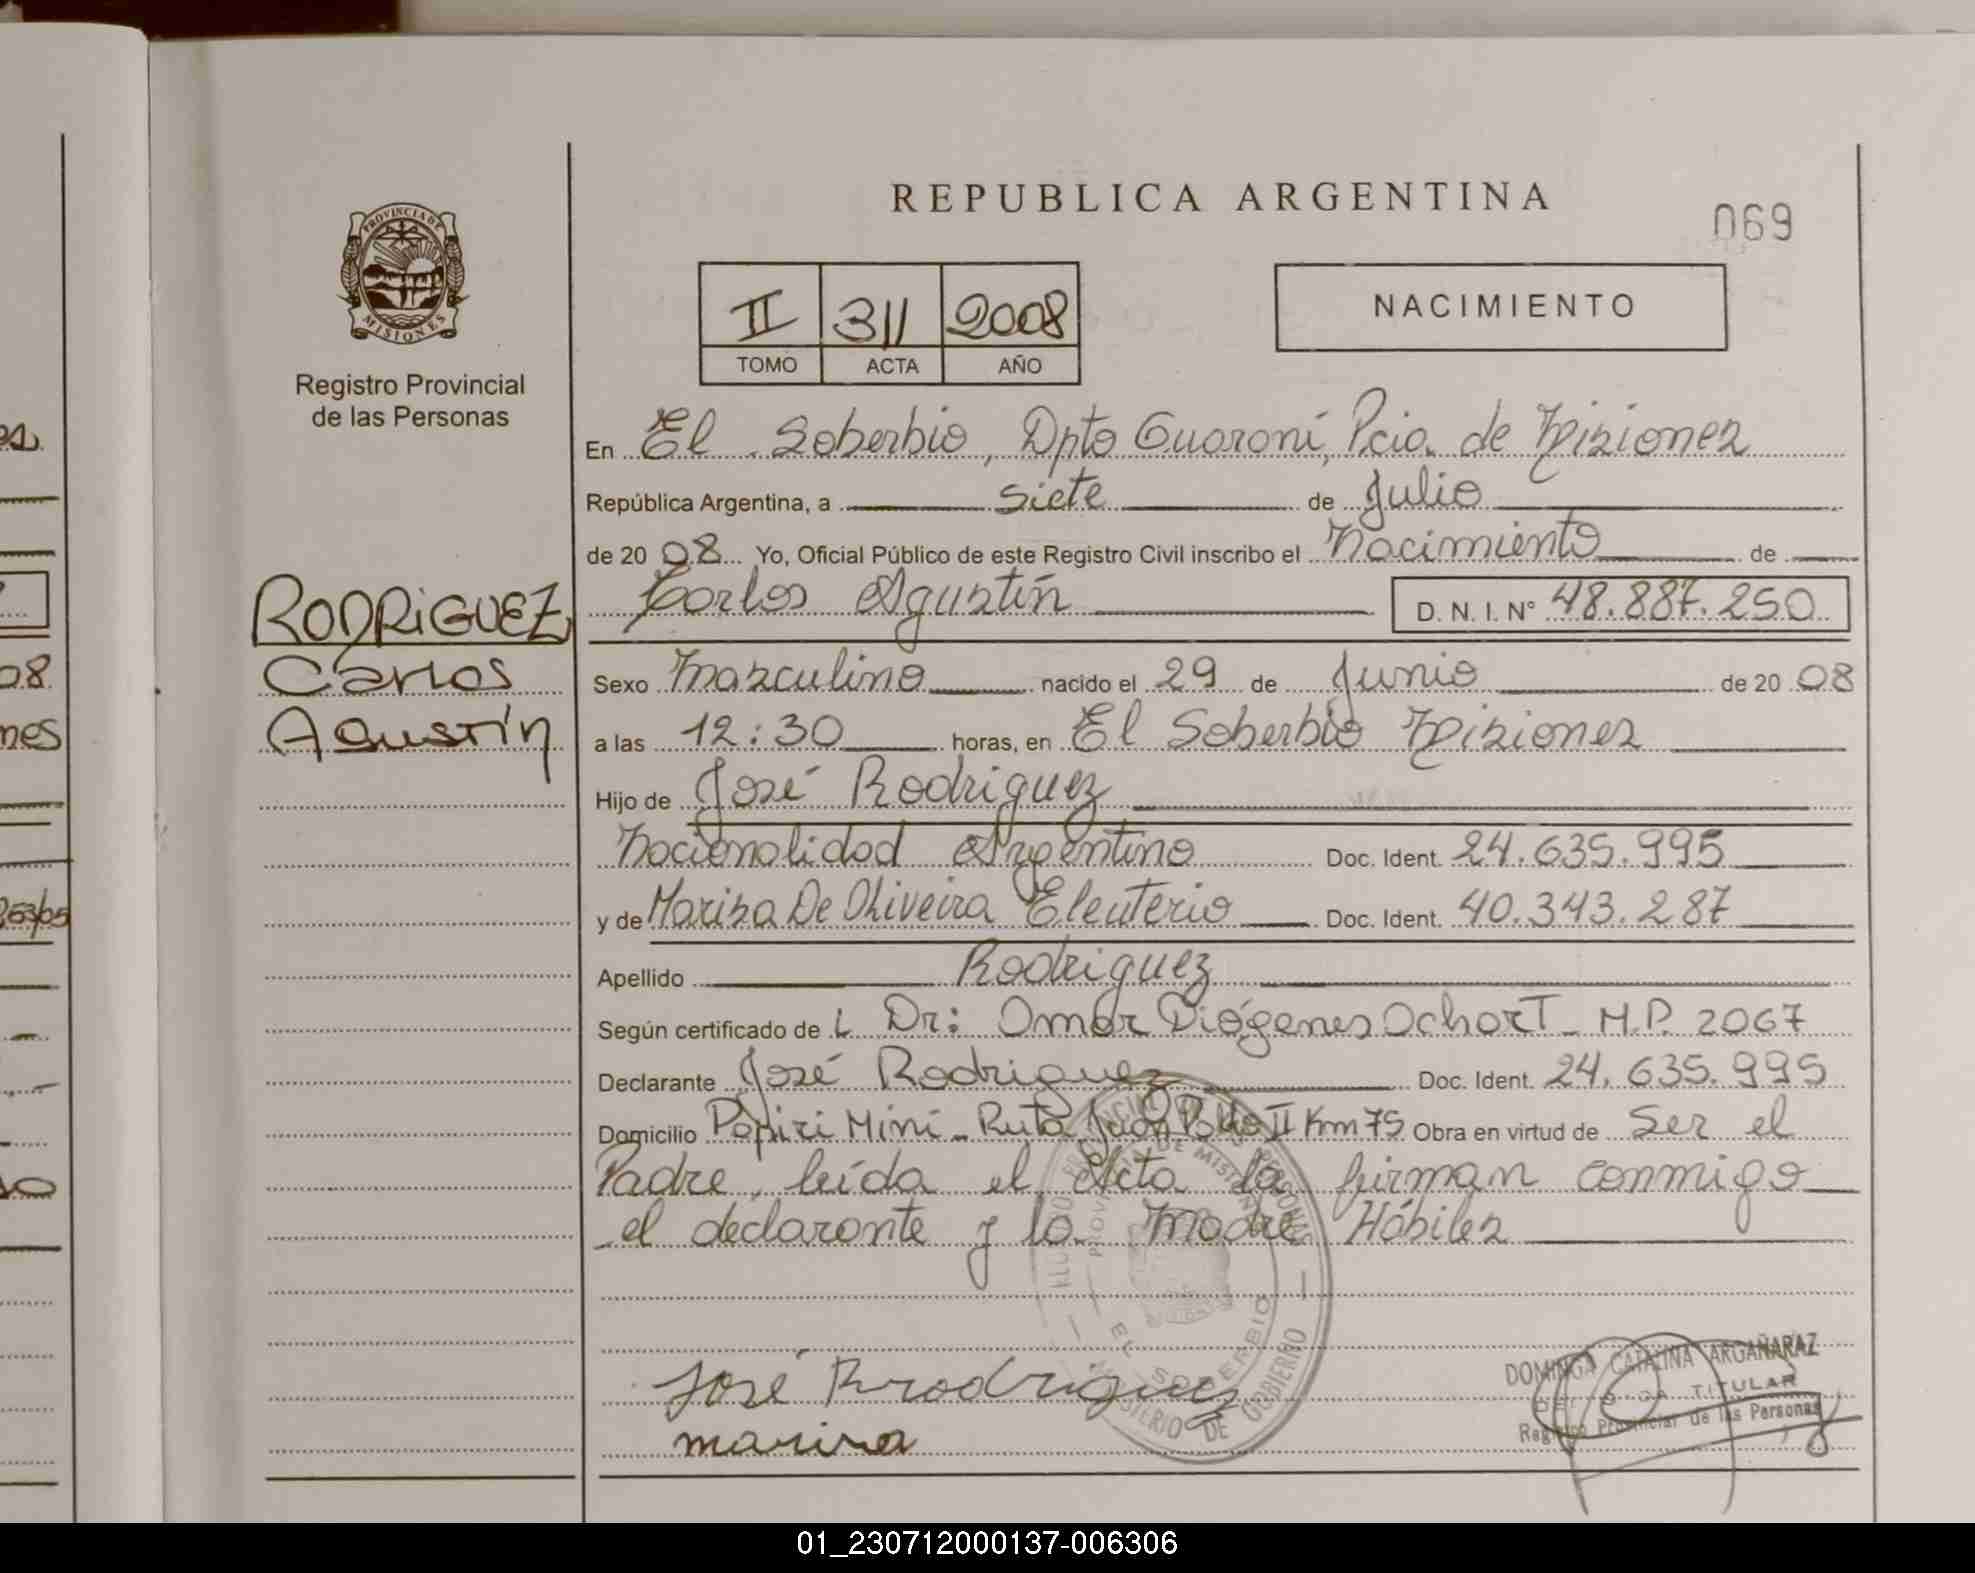 REPUBLICA ARGENTINA
069
PROVINCIA DE
MISIONES
Registro Provincial
de las Personas
II 311 2008
TOMO ACTA AÑO
NACIMIENTO
En El Soberbio, Dpto Guaraní, Pcia. de Misiones
República Argentina, a siete de Julio
de 2008 Yo, Oficial Público de este Registro Civil inscribo el Nacimiento de
Carlos Agustín D. N. I. N° 48.887.250
RODRIGUEZ
Carlos
Agustín
Sexo Masculino nacido el 29 de Junio de 2008
a las 12:30 horas, en El Soberbio Misiones
Hijo de José Rodriguez
Nacionalidad Argentino Doc. Ident. 24.635.995
y de Mariza De Oliveira Eleuterio Doc. Ident. 40.343.287
Apellido Rodriguez
Según certificado de L Dr: Omar Diógenes Ochort - M.P. 2067
Declarante José Rodriguez Doc. Ident. 24.635.995
Domicilio Pepiri Mini - Ruta Juan Pablo II Km 75 Obra en virtud de Ser el
Padre, leída el Acta la firman conmigo
el declarante y la Madre Hábiles
PROVINCIA DE MISIONES
EL SOBERBIO
DE GOBIERNO
José Rrodriguez
mariza
DOMINGA CATALINA ARGAÑARAZ
TITULAR
Registro Provincial de las Personas
08
nes
01_230712000137-006306